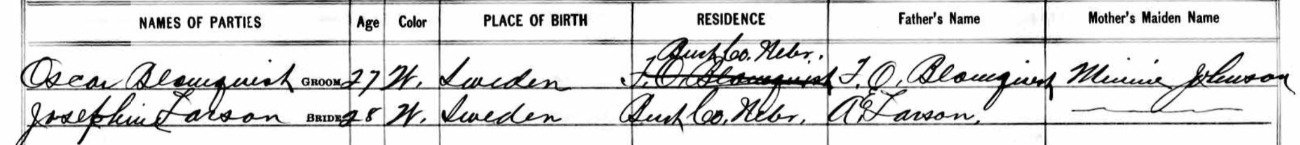 NAMES OF PARTIES Age Color PLACE OF BIRTH RESIDENCE Father's Name Mother's Maiden Name
Burt Co. Nebr.
Oscar Blomquist GROOM 27 W. Sweden F. O. Blomquist F. O. Blomquist Minnie Johnson
Josephine Larson BRIDE 28 W. Sweden Burt Co. Nebr. A Larson.